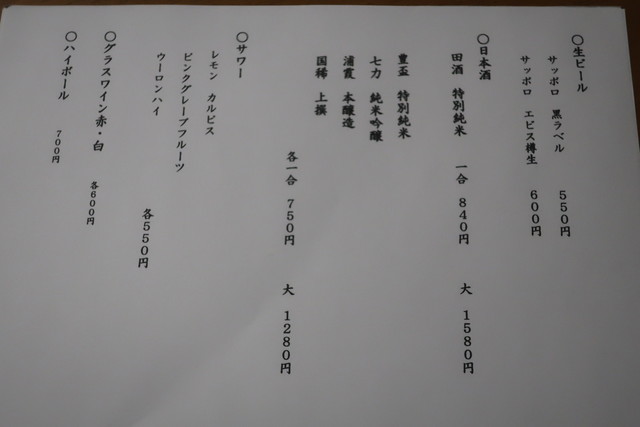 〇生ビール
サッポロ 黒ラベル 550円
サッポロ ヱビス樽生 600円
〇日本酒
田酒 特別純米 一合 840円 大 1580円
豊盃 特別純米
七力 純米吟醸
浦霞 本醸造
国稀 上撰
各一合 750円 大 1280円
〇サワー
レモン カルピス
ピンクグレープフルーツ
ウーロンハイ
各550円
〇グラスワイン赤・白 各600円
〇ハイボール 700円